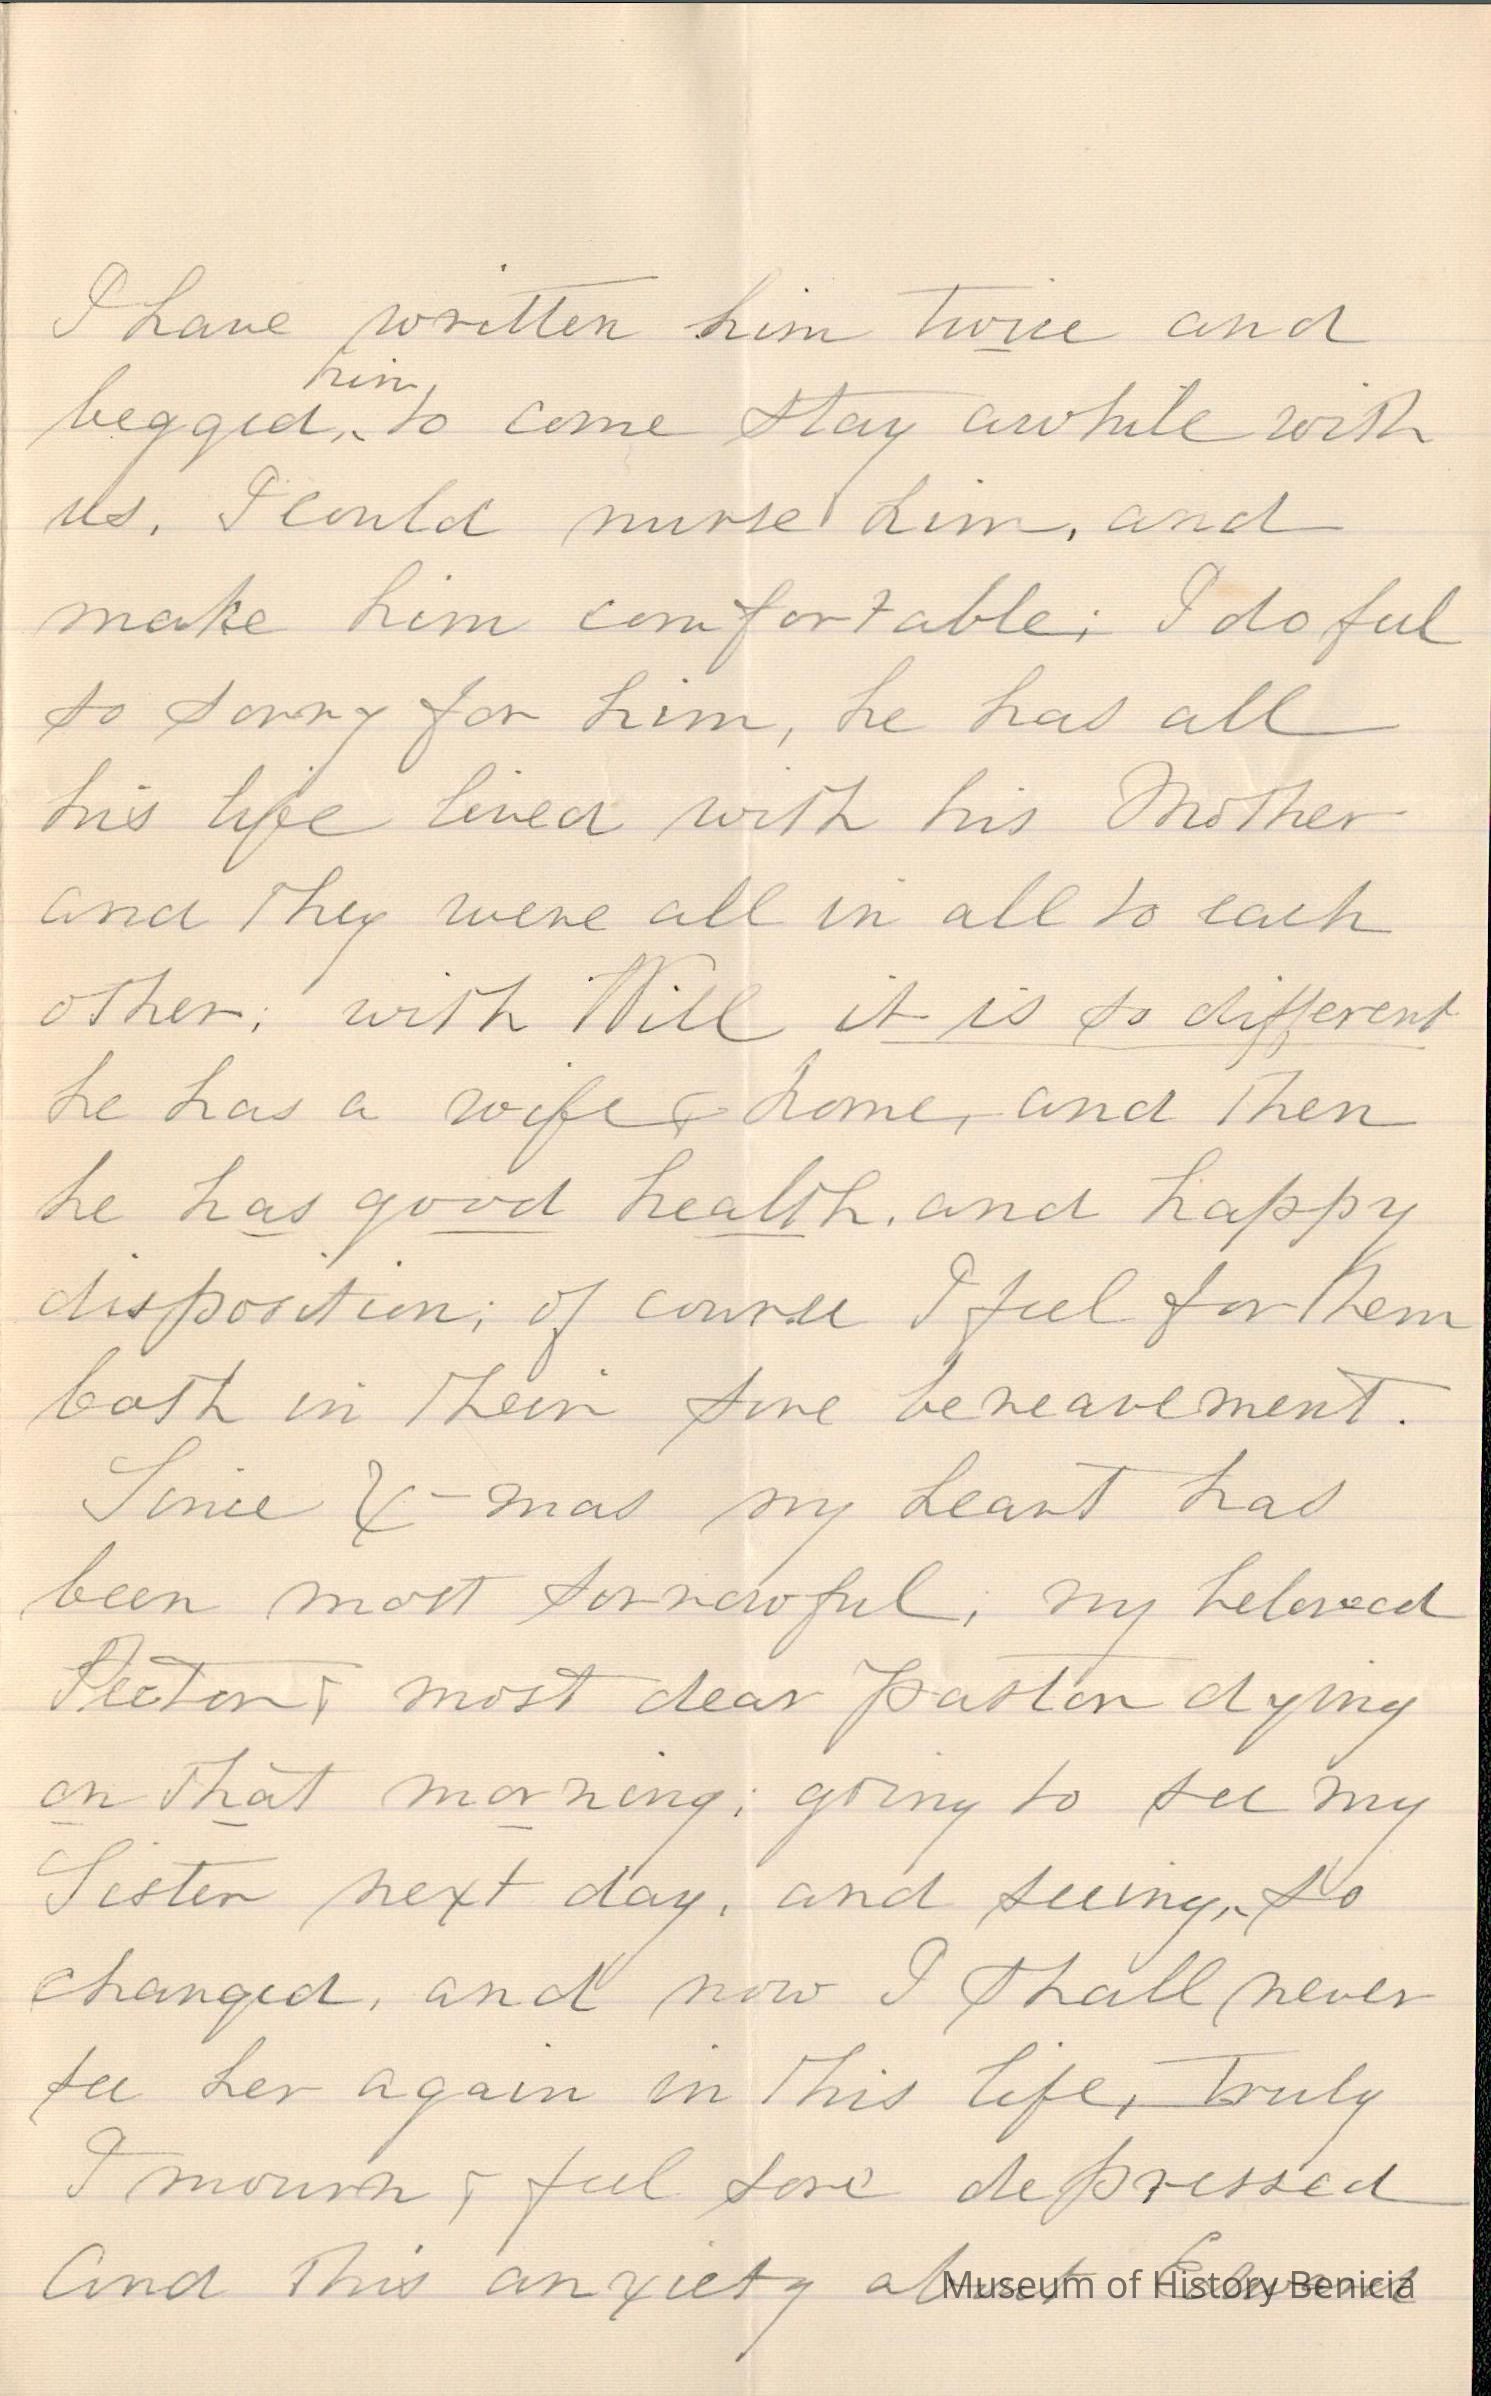 I have written him twice and
begged, him, to come stay awhile with
us, I could nurse him, and
make him comfortable; I do feel
so sorry for him, he has all
his life lived with his Mother
and they were all in all to each
other; with Will it is so different
he has a wife & home, and then
he has good health, and happy
disposition; of course I feel for them
both in their sore bereavement.
Since X-mas my heart has
been most sorrowful; my beloved
Rector & most dear Pastor dying
on that morning; going to see my
Sister next day, and seeing, so
changed, and now I shall never
see her again in this life, truly
I mourn & feel sore depressed
and this anxiety about
Museum of History Benicia